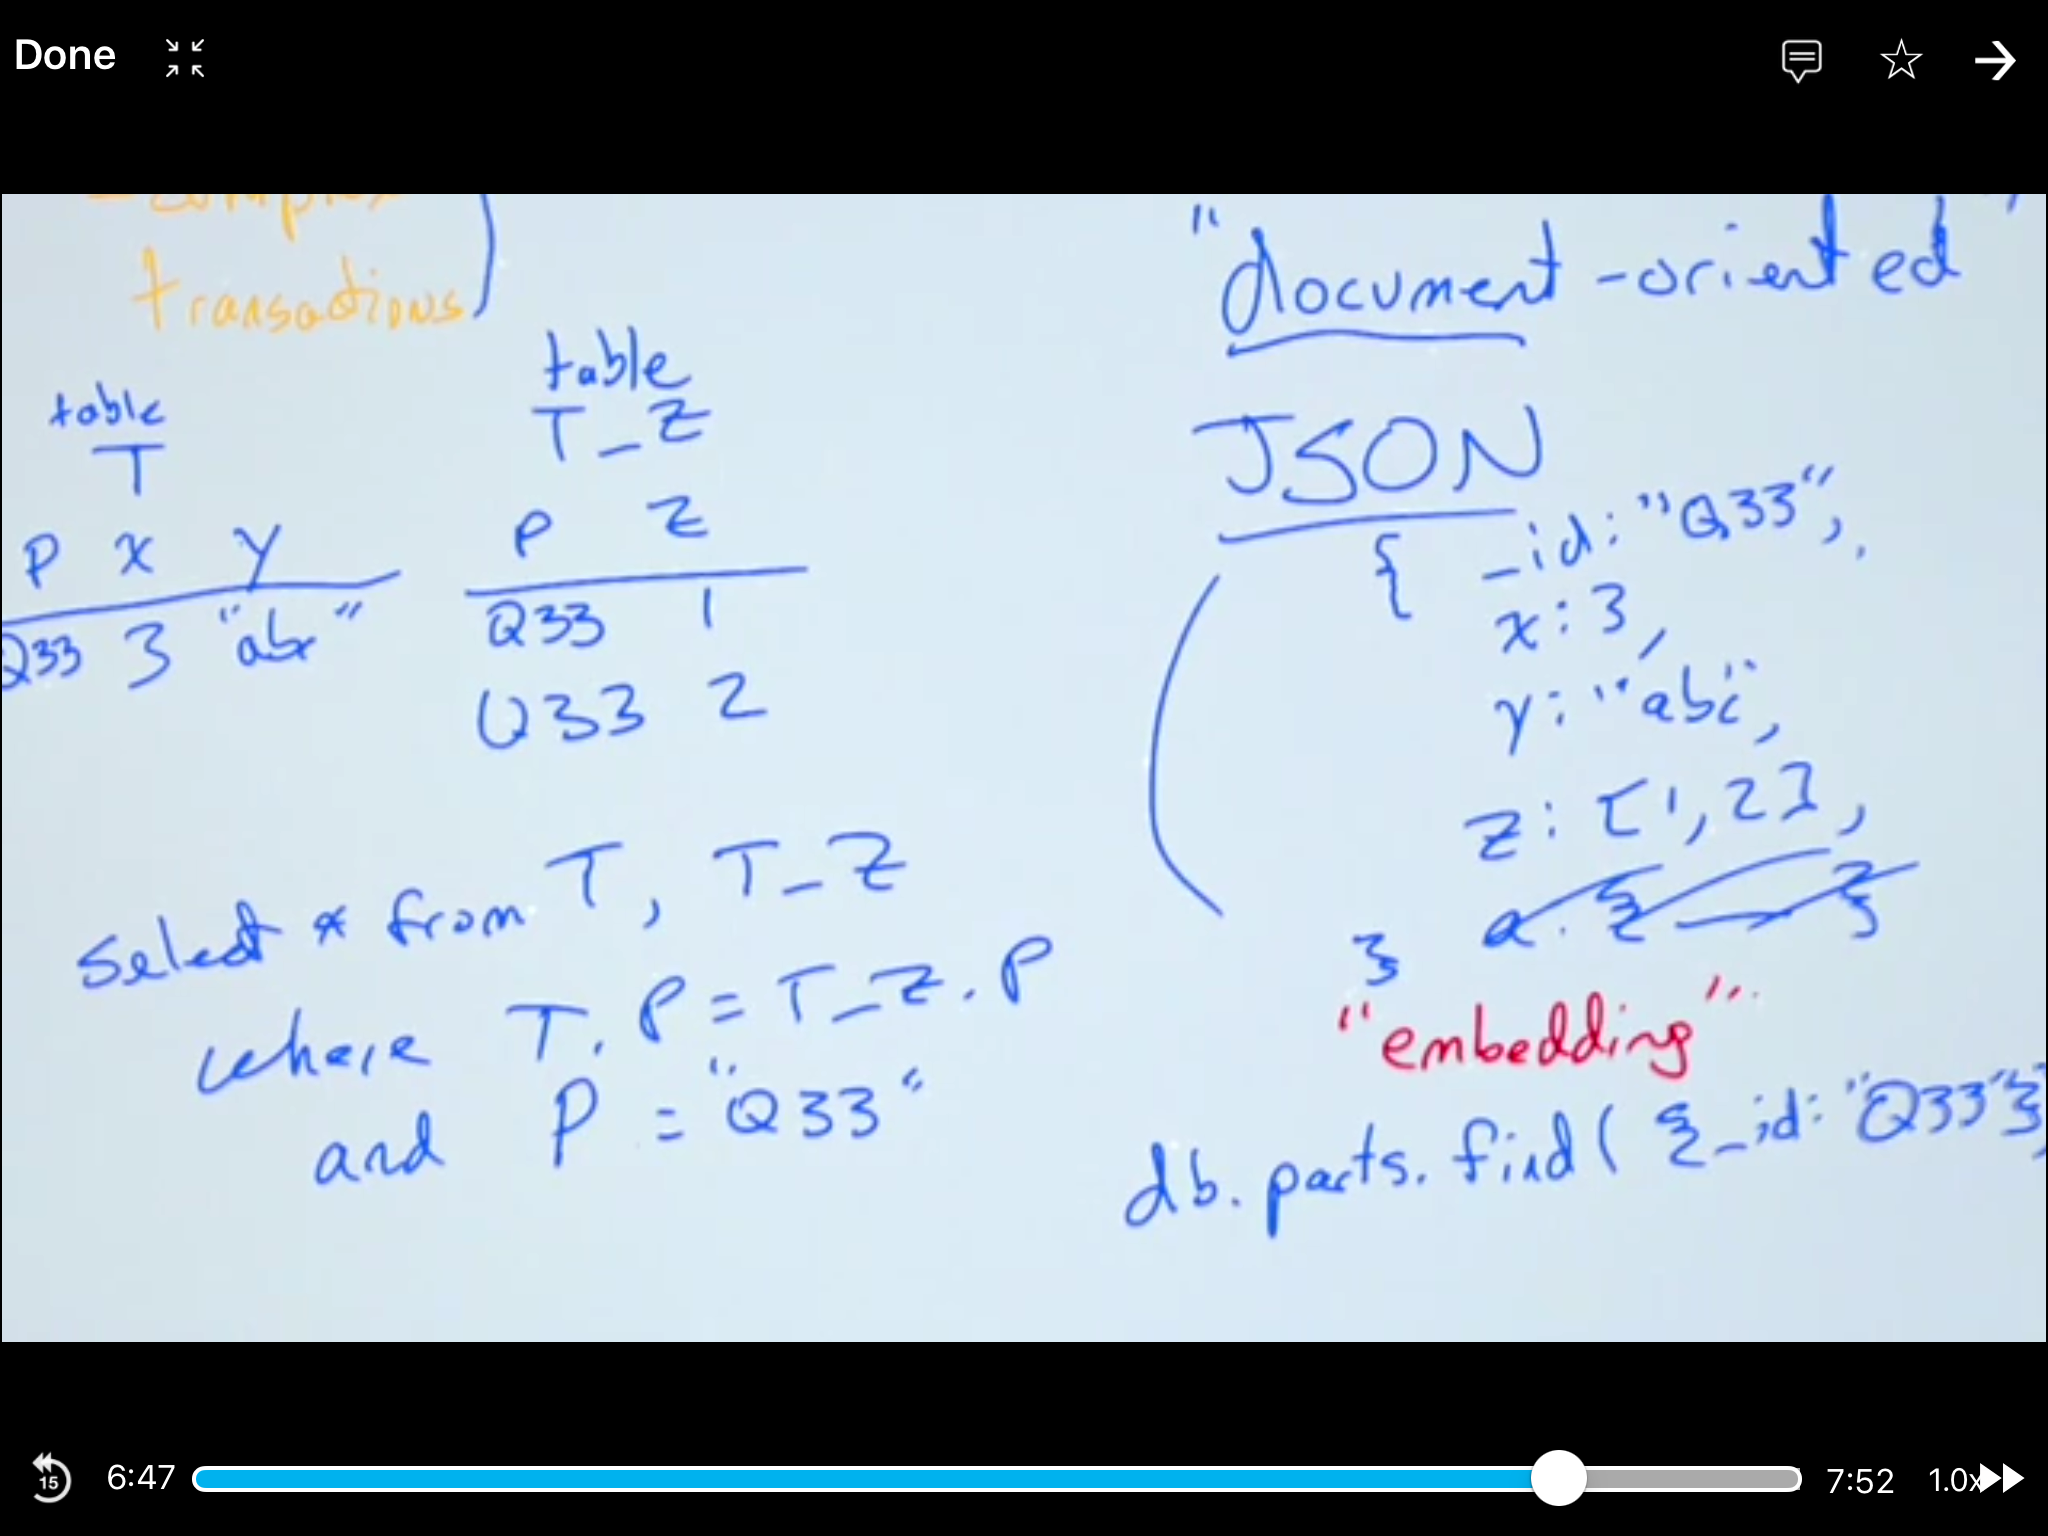 Done
complex
transactions)
table
T
P x y
Q33 3 "abc"
table
T_Z
P Z
Q33 1
Q33 2
Select * from T, T_Z
where T.P = T_Z.P
and P = "Q33"
"document-oriented"
JSON
{ _id: "Q33",
x: 3,
y: "abc",
z: [1,2],
a: { }
}
"embedding"
db.parts.find( {_id: "Q33"}
15
6:47
7:52
1.0x